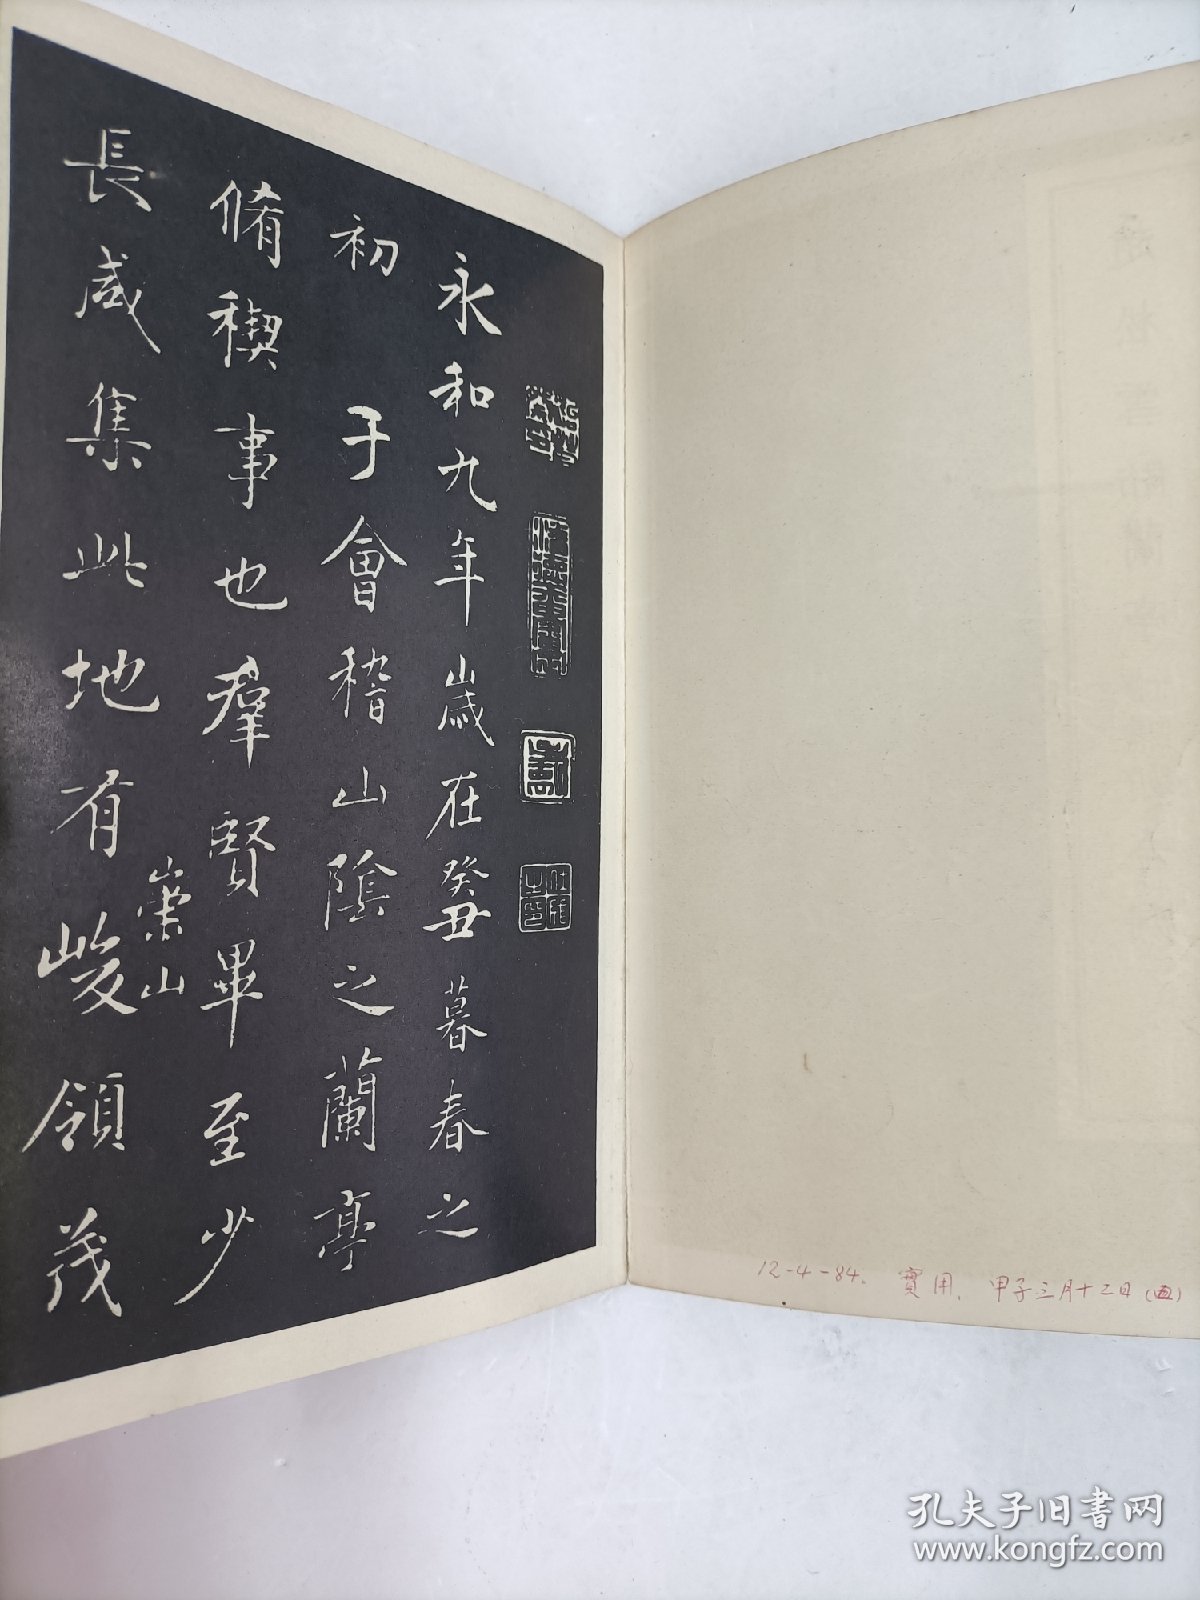 永和九年歲在癸丑暮春之
初于會稽山陰之蘭亭
脩稧事也羣賢畢至少
長咸集此地有峻領茂
崇山
12-4-84. 寶用. 甲子三月十二日
孔夫子旧书网
www.kongfz.com